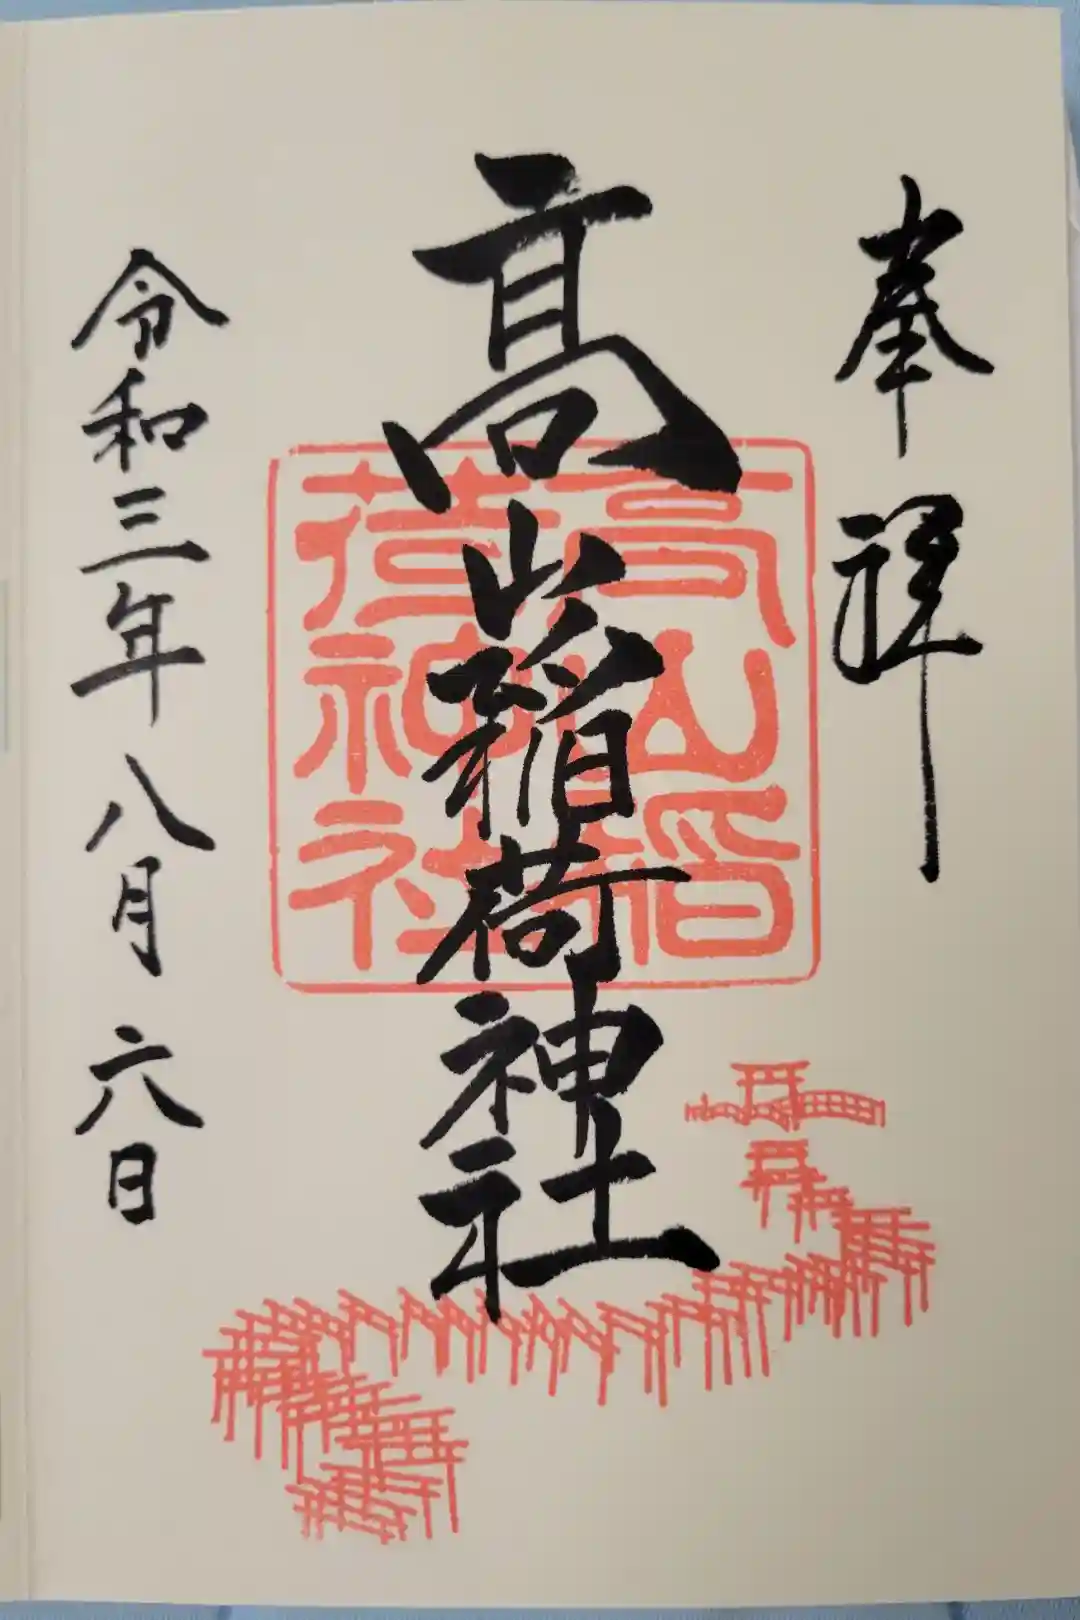 奉拝
高山稲荷神社
高山稲
荷神社
令和三年八月六日